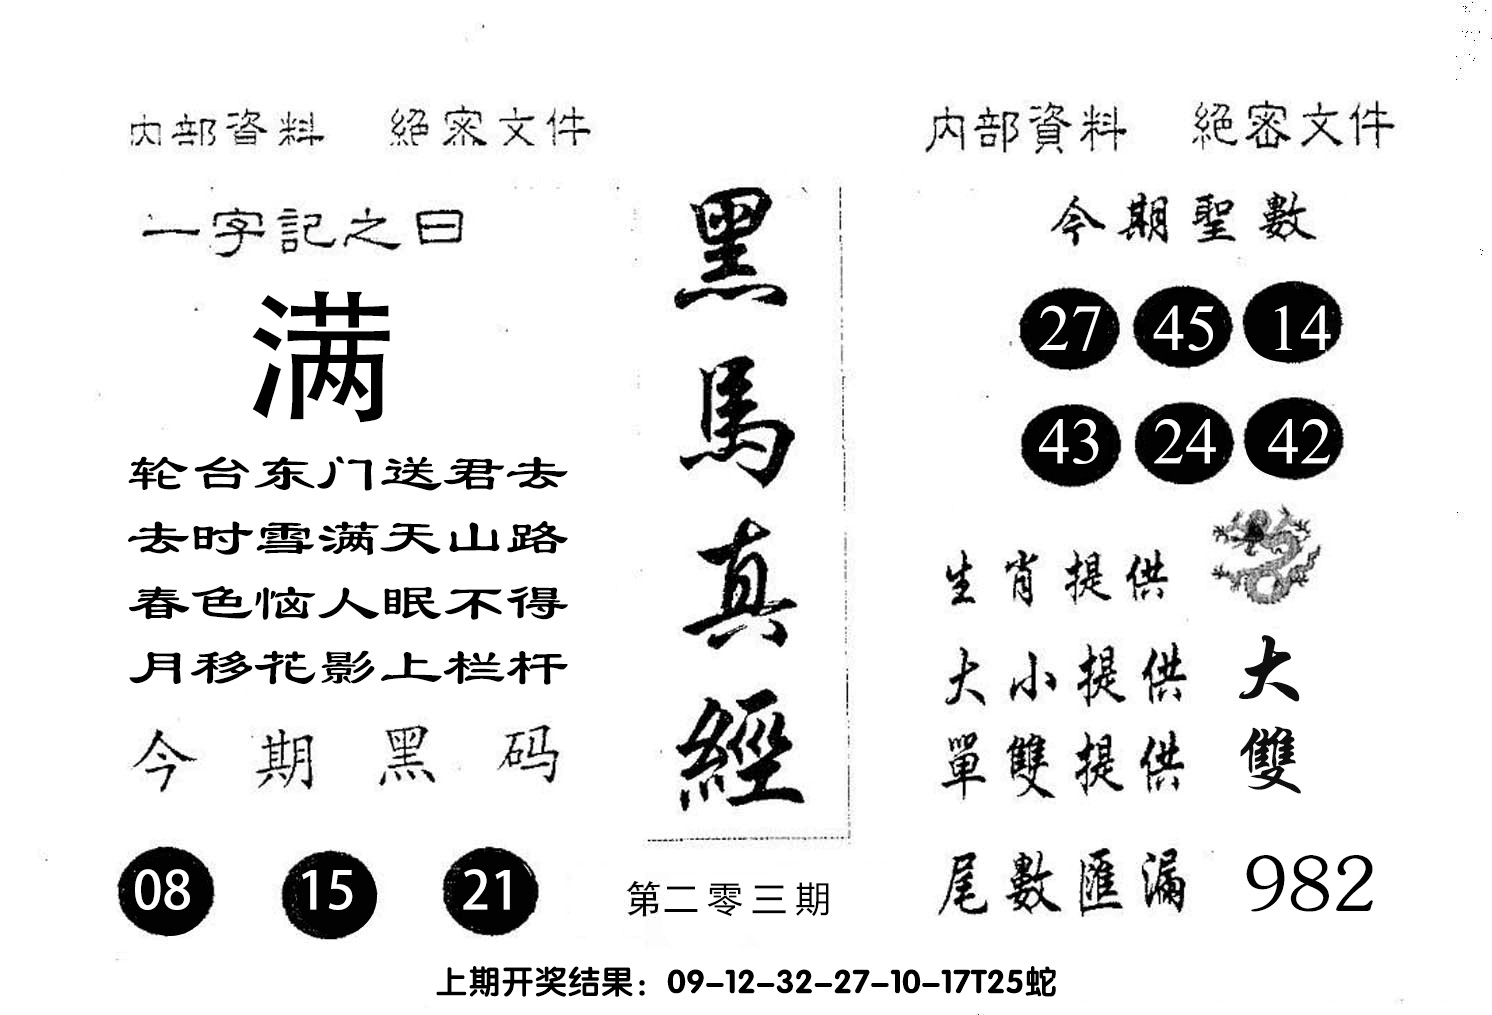 内部資料 絕密文件
一字記之曰
满
轮台东门送君去
去时雪满天山路
春色恼人眠不得
月移花影上栏杆
今期黑码
08 15 21
黑馬真經
第二零三期
内部資料 絕密文件
今期聖數
27 45 14
43 24 42
生肖提供
大小提供 大
單雙提供 雙
尾數匯漏 982
上期开奖结果：09-12-32-27-10-17T25蛇